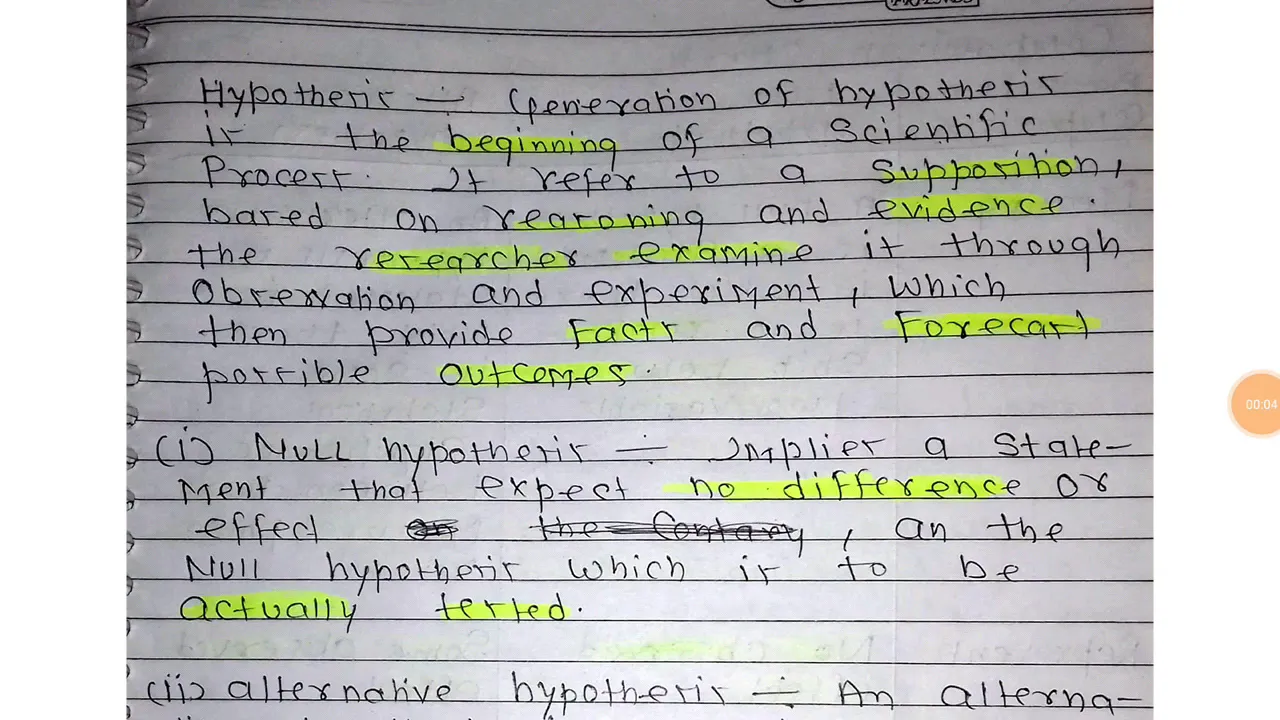 Hypothesis ÷ Generation of hypothesis
is the beginning of a Scientific
Process. It refer to a supposition,
based on reasoning and evidence.
the researcher examine it through
Observation and experiment, which
then provide Facts and Forecast
possible outcomes.
(i) Null hypothesis ÷ Implies a State-
ment that expect no difference or
effect on the Contary, an the
Null hypothesis which is to be
actually tested.
(ii) alternative hypothesis ÷ An alterna-
00:04